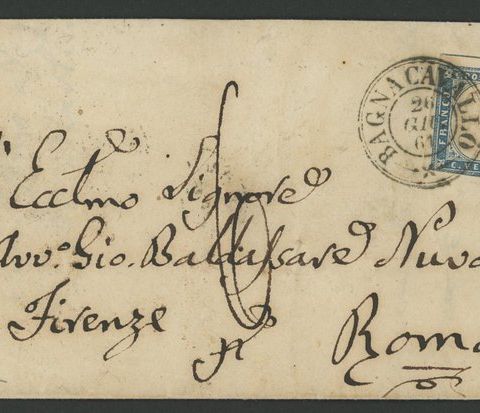 BAGNACAVALLO
26
GIU
61
FRANCO
C. VE
Ecc̃lmo Signore
Avv.º Gio. Baldassare Nuvo
Firenze pr Roma